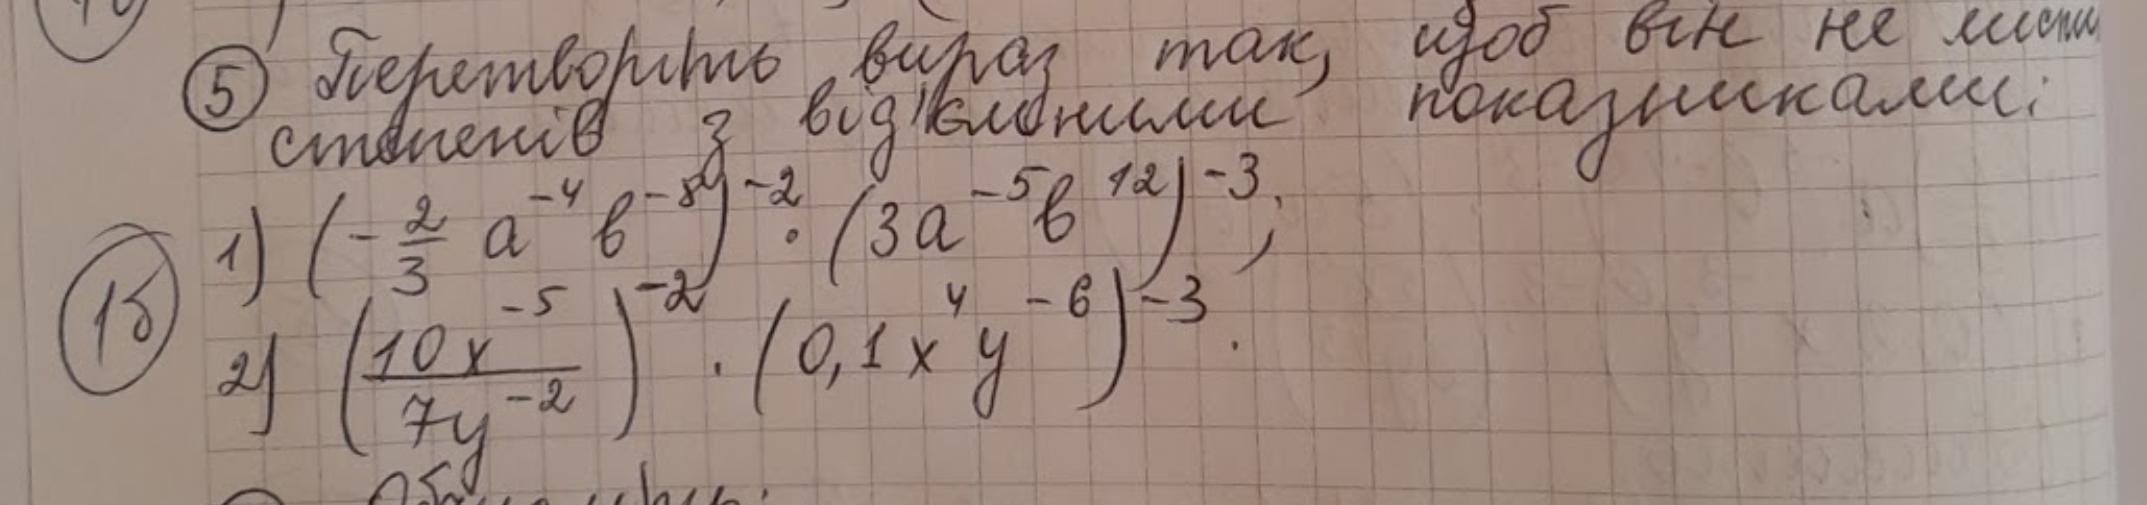 ⑤ Перетворіть вираз так, щоб він не місти
степенів з від'ємними показниками:
1) (-2/3 a⁻⁴ b⁻⁸)⁻² · (3a⁻⁵b¹²)⁻³;
1б
2) (10x⁻⁵/7y⁻²)⁻² · (0,1x⁴y⁻⁶)⁻³.